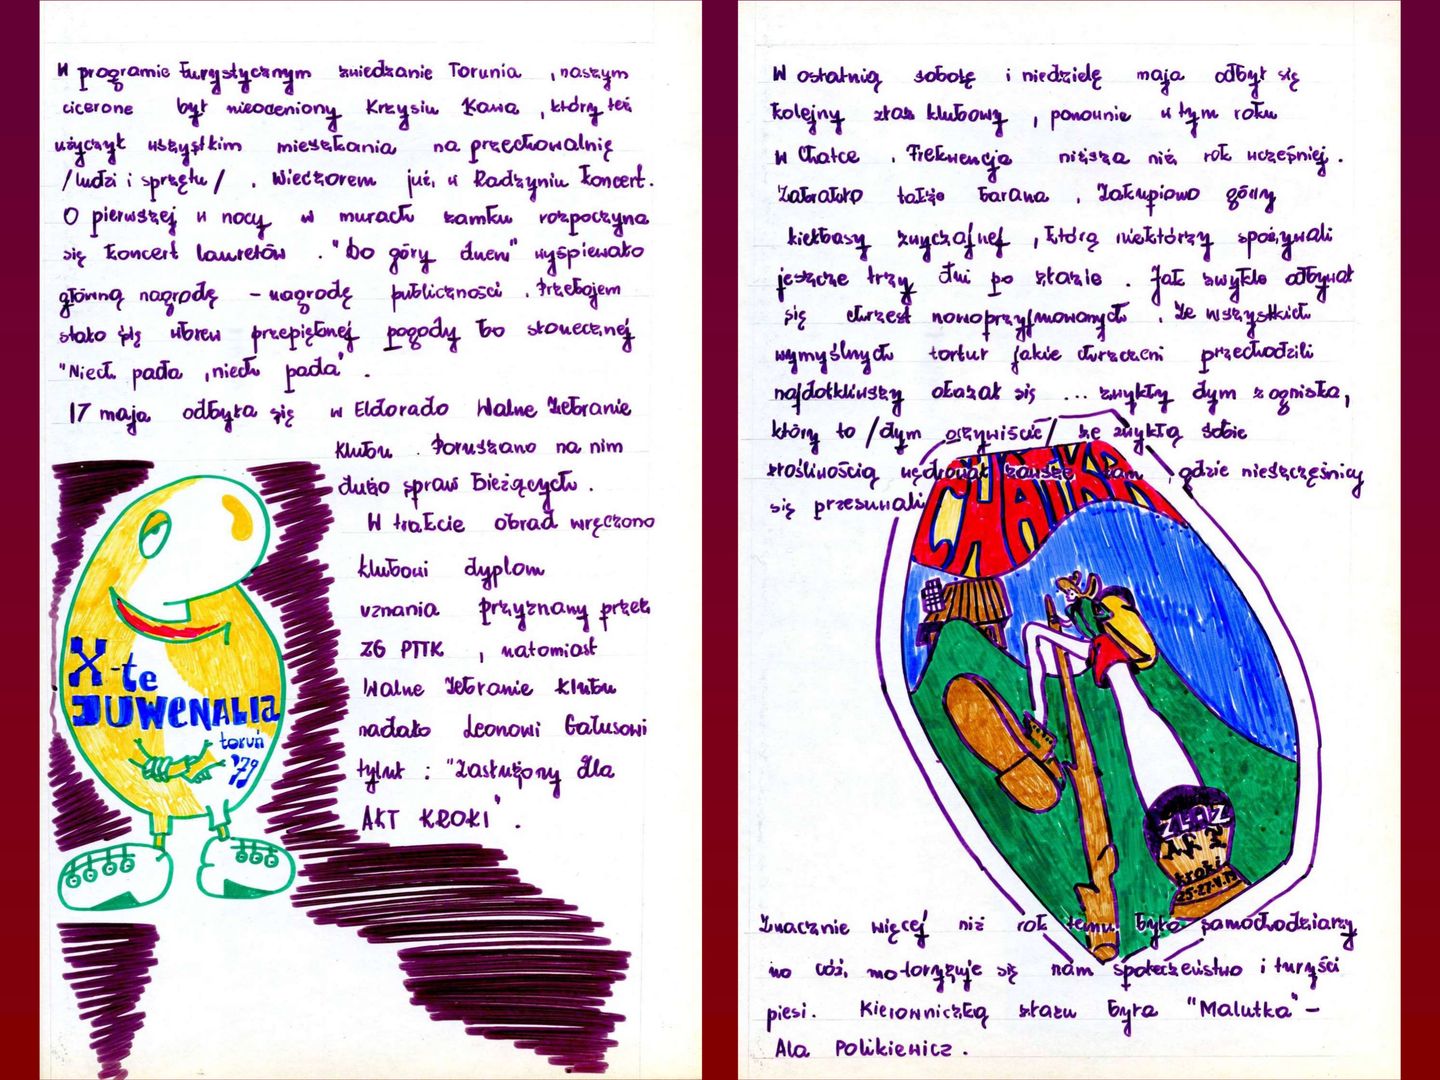 W programie turystycznym zwiedzanie Torunia , naszym
cicerone był nieoceniony Krzysiu Kawa , który też
użyczył wszystkim mieszkania na przechowalnię
/ludzi i sprzętu/ . Wieczorem już w Radzyniu koncert.
O pierwszej w nocy w murach zamku rozpoczyna
się koncert lauretów . "Do góry dnem" wyśpiewało
główną nagrodę – nagrodę publiczności . Przebojem
stało się wbrew przepięknej pogody bo słonecznej
"Niech pada , niech pada" .
17 maja odbyła się w Eldorado Walne Zebranie
Klubu . Poruszano na nim
dużo spraw bieżących .
W trakcie obrad wręczono
klubowi dyplom
uznania przyznany przez
ZG PTTK , natomiast
Walne Zebranie Klubu
nadało Leonowi Gałusowi
tytuł : "Zasłużony dla
AKT KROKI" .
X-te
JUWENALIA
toruń
'79
W ostatnią sobotę i niedzielę maja odbył się
kolejny złaz klubowy , ponownie w tym roku
w Chatce . Frekwencja niższa niż rok wcześniej .
Zabrakło także barana . Zakupiono góry
kiełbasy zwyczajnej , którą niektórzy spożywali
jeszcze trzy dni po złazie . Jak zwykle odbywał
się chrzest nowoprzyjmowanych . Ze wszystkich
wymyślnych tortur jakie chrzczeni przechodzili
najdotkliwszy okazał się ... zwykły dym z ogniska,
który to /dym oczywiście/ ze zwykłą sobie
złośliwością wędrował zawsze tam , gdzie nieszczęśnicy
się przesuwali
CHATKA
ZŁAZ
AKT
kroki
25-27.V.79
Znacznie więcej niż rok temu było samochodziarzy
no cóż, motoryzuje się nam społeczeństwo i turyści
piesi . Kierowniczką złazu była "Malutka" –
Ala Polikiewicz .